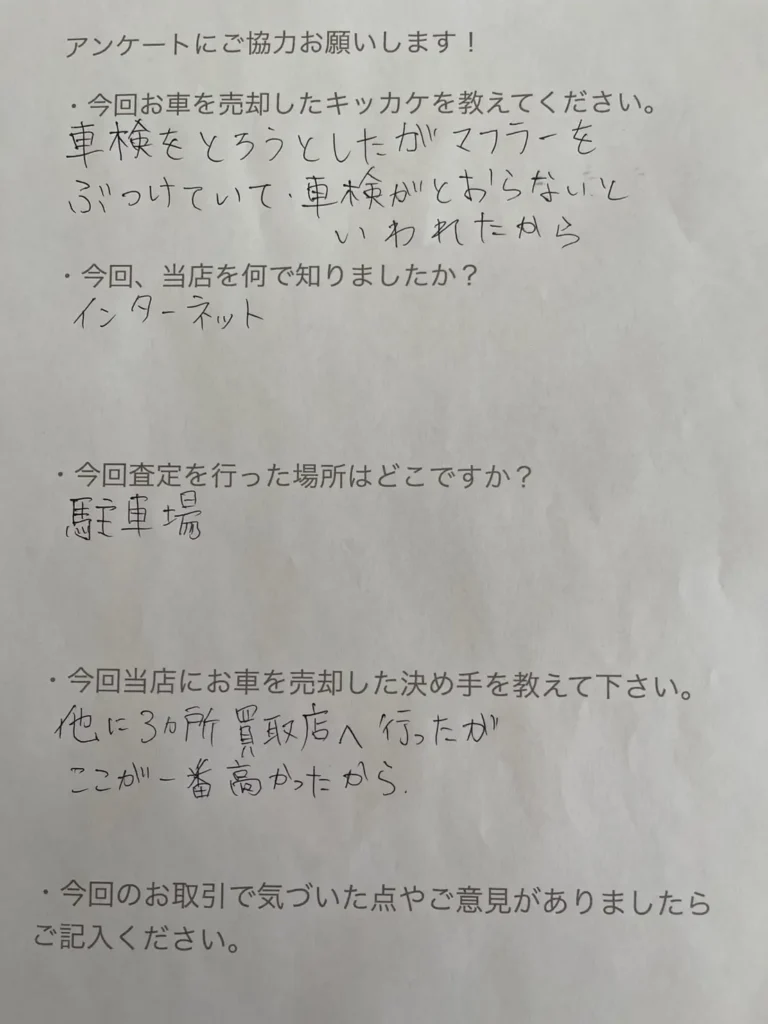 アンケートにご協力お願いします！
・今回お車を売却したキッカケを教えてください。
車検をとろうとしたがマフラーを
ぶつけていて、車検がとおらないと
いわれたから
・今回、当店を何で知りましたか？
インターネット
・今回査定を行った場所はどこですか？
駐車場
・今回当店にお車を売却した決め手を教えて下さい。
他に3カ所買取店へ行ったが
ここが一番高かったから.
・今回のお取引で気づいた点やご意見がありましたら
ご記入ください。